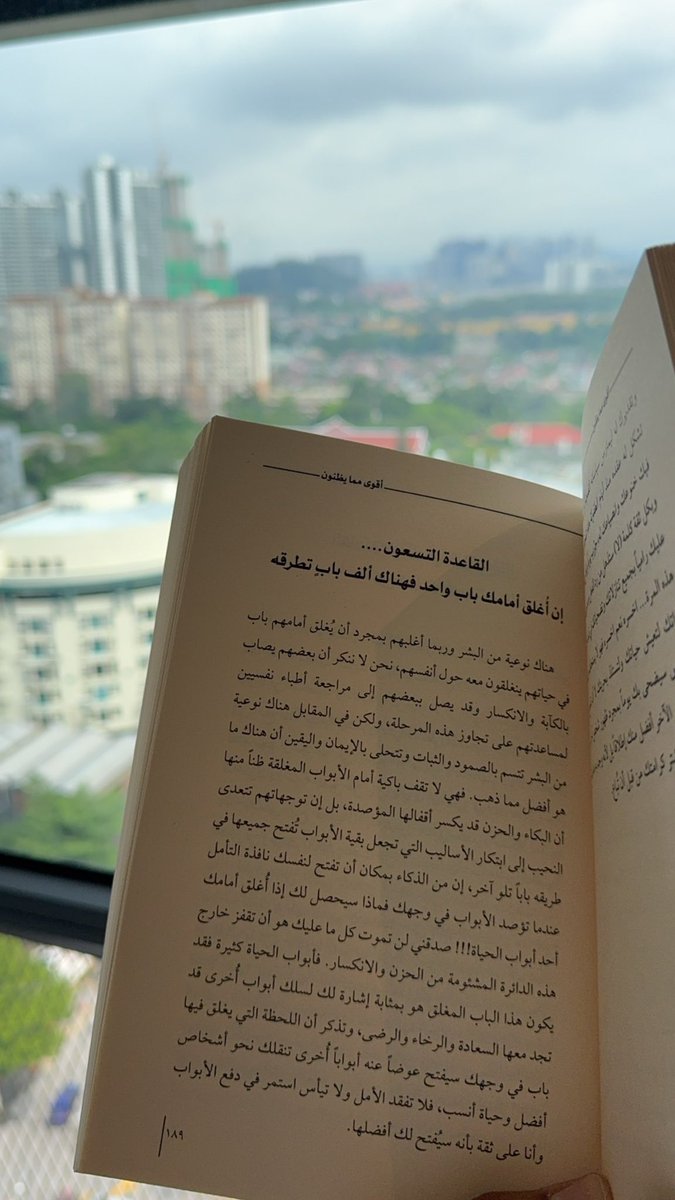 أقوى مما يظنون
القاعدة التسعون....
إن أُغلق أمامك باب واحد فهناك ألف بابٍ تطرقه
هناك نوعية من البشر وربما أغلبهم بمجرد أن يُغلق أمامهم باب
في حياتهم ينغلقون معه حول أنفسهم، نحن لا ننكر أن بعضهم يصاب
بالكآبة والانكسار وقد يصل ببعضهم إلى مراجعة أطباء نفسيين
لمساعدتهم على تجاوز هذه المرحلة، ولكن في المقابل هناك نوعية
من البشر تتسم بالصمود والثبات وتتحلى بالإيمان واليقين أن هناك ما
هو أفضل مما ذهب. فهي لا تقف باكية أمام الأبواب المغلقة ظناً منها
أن البكاء والحزن قد يكسر أقفالها المؤصدة، بل إن توجهاتهم تتعدى
النحيب إلى ابتكار الأساليب التي تجعل بقية الأبواب تُفتح جميعها في
طريقه باباً تلو آخر، إن من الذكاء بمكان أن تفتح لنفسك نافذة التأمل
عندما تؤصد الأبواب في وجهك فماذا سيحصل لك إذا أُغلق أمامك
أحد أبواب الحياة!!! صدقني لن تموت كل ما عليك هو أن تقفز خارج
هذه الدائرة المشئومة من الحزن والانكسار. فأبواب الحياة كثيرة فقد
يكون هذا الباب المغلق هو بمثابة إشارة لك لسلك أبواب أُخرى قد
تجد معها السعادة والرخاء والرضى، وتذكر أن اللحظة التي يغلق فيها
باب في وجهك سيفتح عوضاً عنه أبواباً أُخرى تنقلك نحو أشخاص
أفضل وحياة أنسب، فلا تفقد الأمل ولا تيأس استمر في دفع الأبواب
وأنا على ثقة بأنه سيُفتح لك أفضلها.
١٨٩